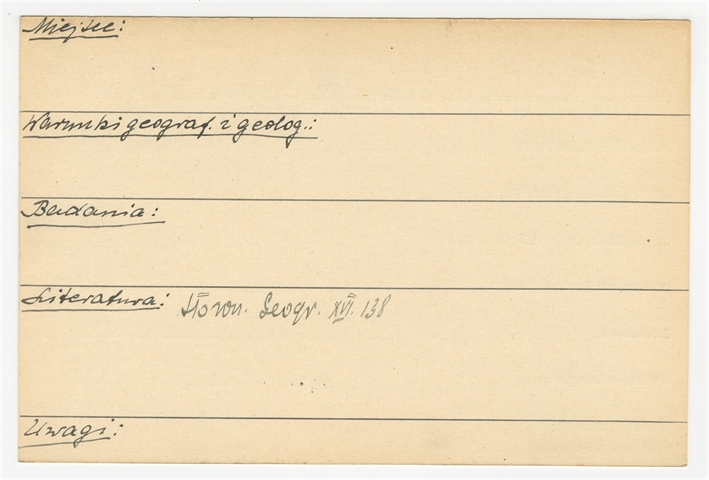 Miejsce:
Warunki geograf. i geolog.:
Badania:
Literatura: Słown. Geogr. XVI. 138
Uwagi: